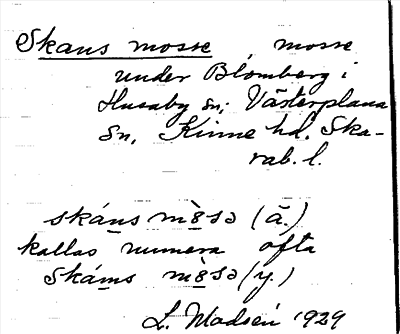 Skans mosse, mosse
under Blomberg i
Husaby sn; Västerplana
sn, Kinne hd. Ska-
rab. l.
skáns mòsə (ä.)
kallas numera ofta
skáms mòsə (y.)
L. Modsén 1929